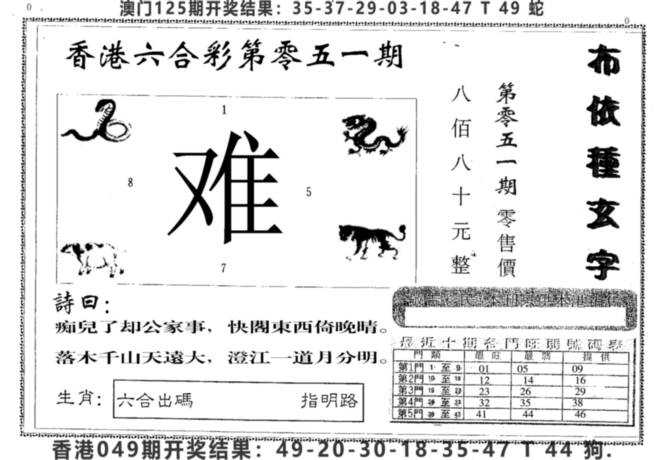 澳门125期开奖结果：35-37-29-03-18-47 T 49 蛇
0
0
香港六合彩第零五一期
1
难
8
5
7
布依種玄字
第零五一期零售價
八佰八十元整
詩曰：
痴兒了却公家事，快閣東西倚晚晴。
落木千山天遠大，澄江一道月分明。
生肖：
六合出碼 指明路
最近十期各門旺開號碼
門類 最旺 最弱 提供
第1門 1 至 9 01 05 09
第2門 至 12 14 16
第3門 至 23 26 29
第4門 至 32 35 38
第5門 至 41 44 46
香港049期开奖结果：49-20-30-18-35-47 T 44 狗.